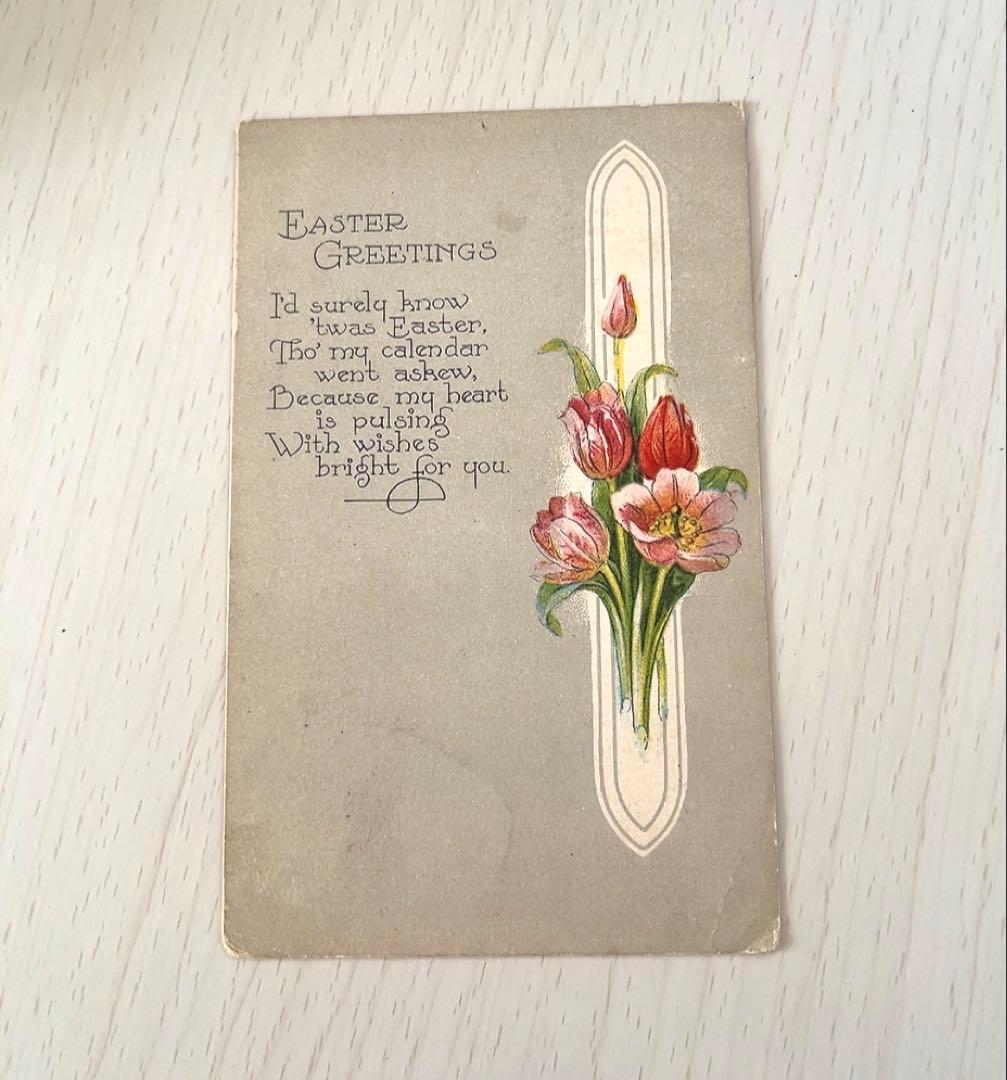 EASTER
GREETINGS
I'd surely know
'twas Easter,
Tho' my calendar
went askew,
Because my heart
is pulsing
With wishes
bright for you.